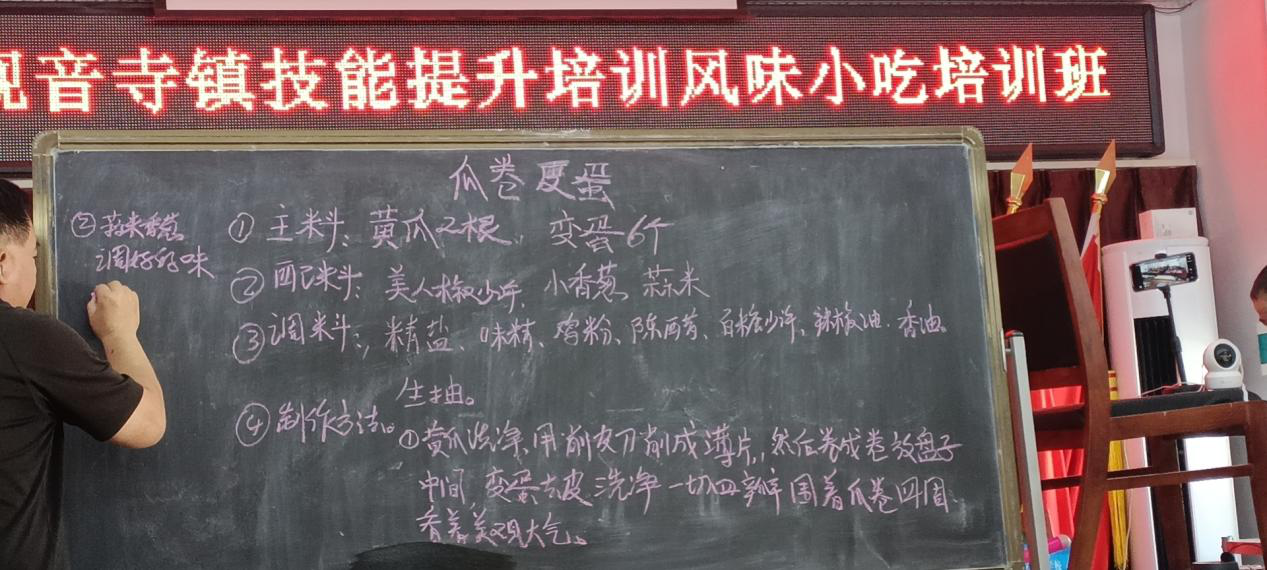 观音寺镇技能提升培训风味小吃培训班
瓜卷变蛋
①主料：黄瓜2根，变蛋6个
②配料：美人椒少许，小香葱，蒜米
③调料：精盐、味精、鸡粉、陈醋、白糖少许、辣椒油、香油。
生抽。
④制作方法。
①黄瓜洗净，用削皮刀削成薄片，然后卷成卷放盘子
中间，变蛋去皮洗净一切四瓣围着瓜卷四周
看着美观大气。
②蒜米香葱
调好的味